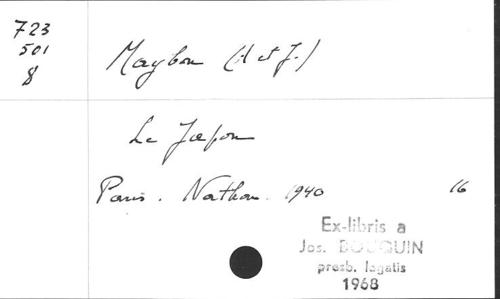 723
501
8
Maybon (A et J.)
Le Japon
Paris. Nathan. 1940 16
Ex-libris a
Jos. BOUQUIN
presb. legatis
1968